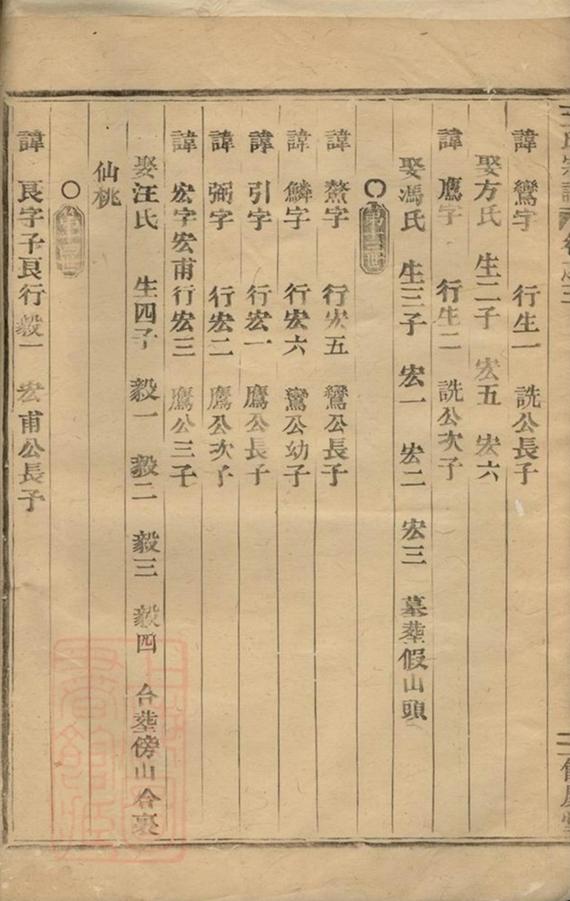 氏宗譜 卷之三
諱 鸞字 行生一 詵公長子
娶方氏 生二子 宏五 宏六
諱 鷹字 行生二 詵公次子
娶馮氏 生三子 宏一 宏二 宏三 墓葬假山頭
諱 字 行宏五 鸞公長子
諱 鱗字 行宏六 鸞公幼子
諱 引字 行宏一 鷹公長子
諱 弼字 行宏二 鷹公次子
諱 宏字宏甫行宏三 鷹公三子
娶汪氏 生四子 毅一 毅二 毅三 毅四 合葬傍山合裏
仙桃
諱 良字子良行毅一 宏甫公長子